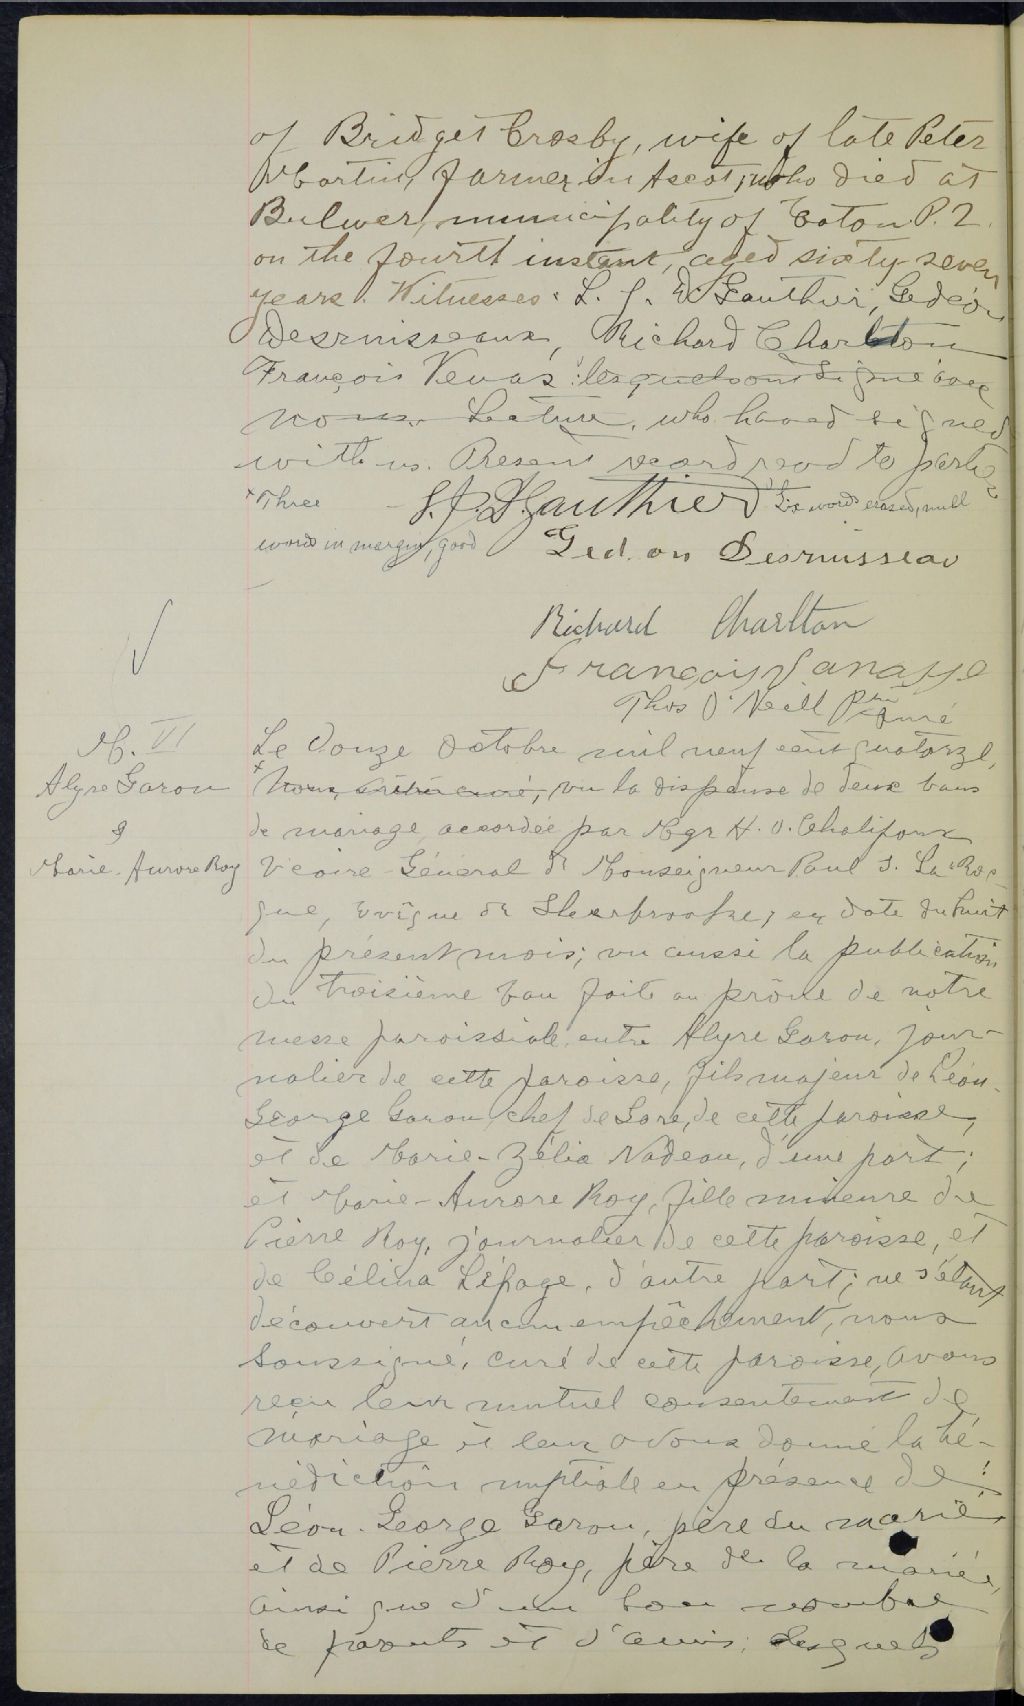 of Bridget Crosby, wife of late Peter
Martin, farmer in Ascot, who died at
Bulwer, municipality of Eaton P. 2.
on the fourth instant, aged sixty seven
years. Witnesses: L. J. D. Gauthier, Gedéon
Desruisseaux, Richard Charlton
François Venas: lesquels ont signé avec
nous. Lecture. who haved signed
with us. Present record read to parties
x Three
L. J. D. Gauthier Six words erased, null
words in margin, good
Ged on Desruisseau
Richard Charlton
François Vanasse
Thos O'Neill Ptre Curé
M. VI
Alyre Garon
&
Marie-Aurore Roy
Le douze octobre mil neuf cent quatorze,
x Nous, prêtre curé, vu la dispense de deux bans
de mariage accordée par Mgr H. O. Chalifoux
Vicaire Général de Monseigneur Paul S. LaRoc-
que, évêque de Sherbrooke, en date du huit
du présent mois; vu aussi la publication
du troisième ban faite au prône de notre
messe paroissiale entre Alyre Garon, jour-
nalier de cette paroisse, fils majeur de Léon-
George Garon, chef de Gare, de cette paroisse,
et de Marie-Zélia Nadeau, d'une part;
et Marie-Aurore Roy, fille mineure de
Pierre Roy, journalier de cette paroisse, et
de Célina Lépage, d'autre part; ne s'étant
découvert aucun empêchement, nous
soussigné, curé de cette paroisse, avons
reçu leur mutuel consentement de
mariage et leur avons donné la bé-
nédiction nuptiale en présence de:
Léon-George Garon, père du marié
et de Pierre Roy, père de la mariée,
ainsi que d'un bon nombre
de parents et d'amis; lesquels